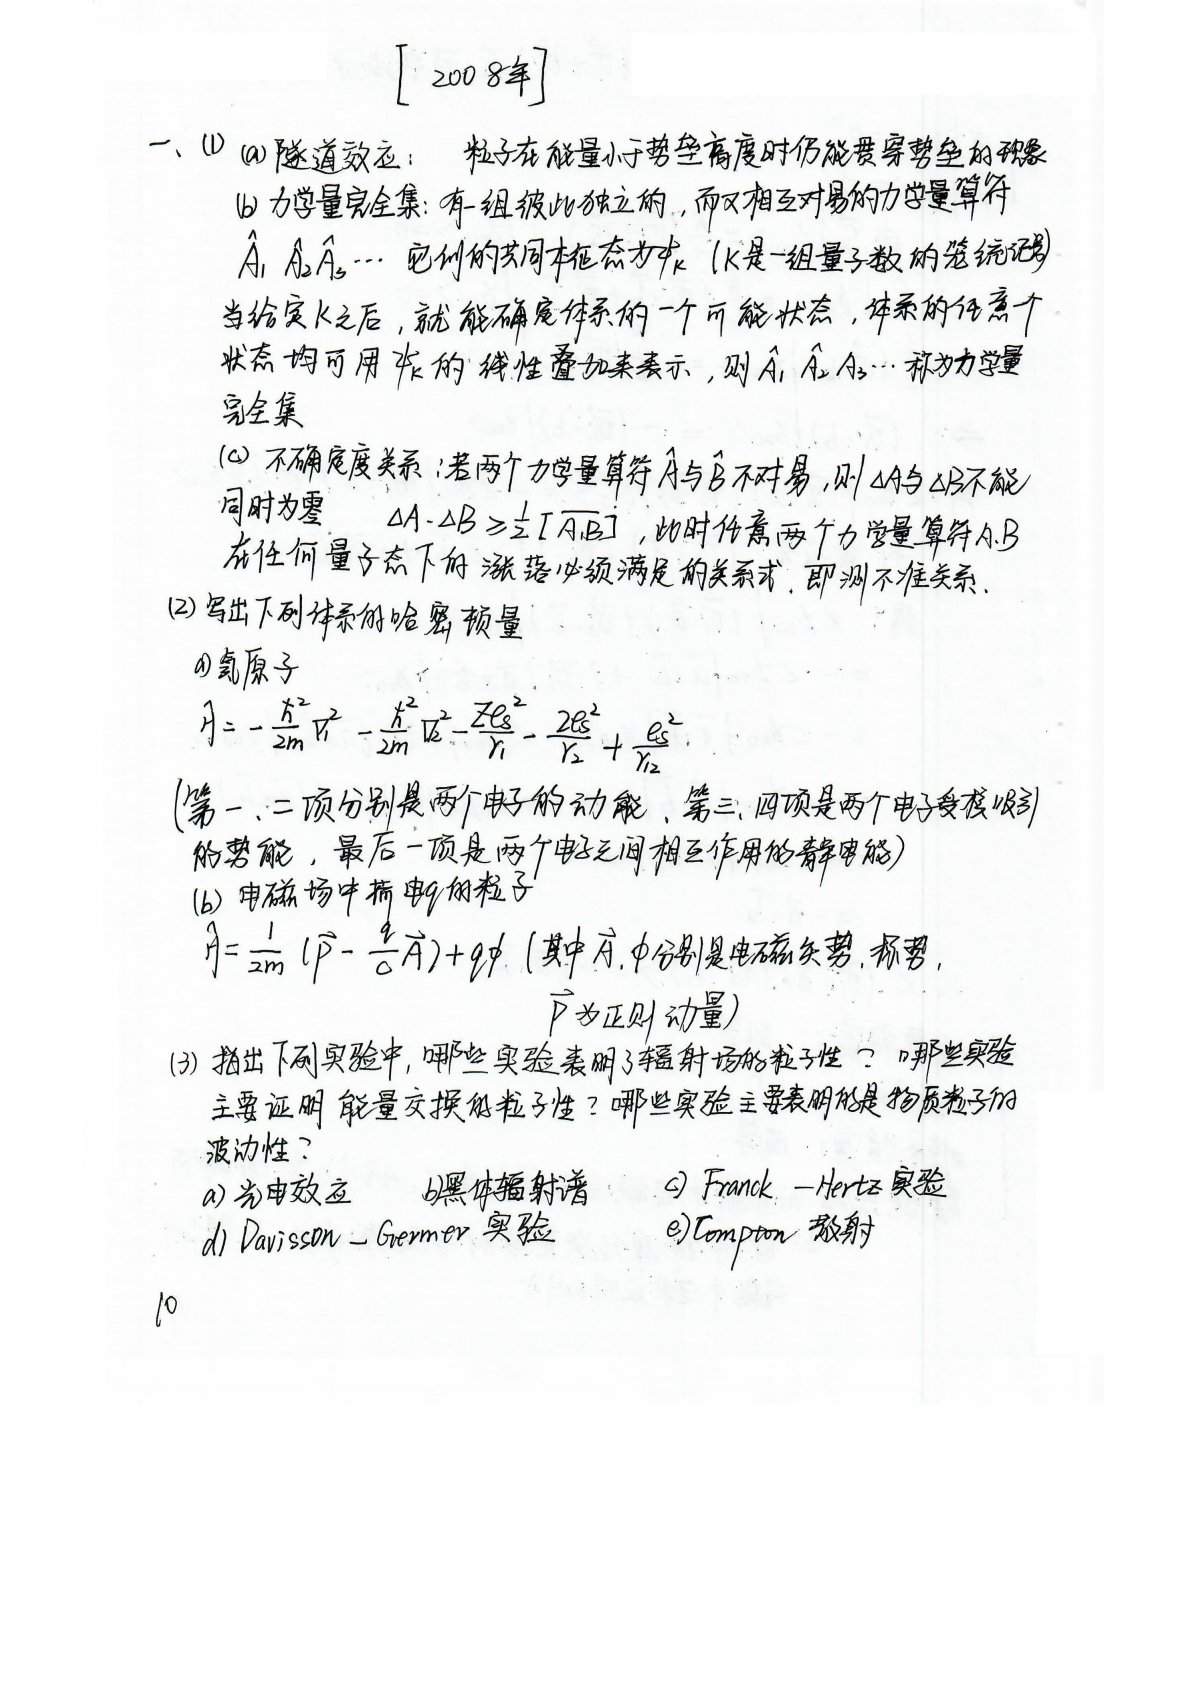 [2008年]
一、(1) (a) 隧道效应: 粒子在能量小于势垒高度时仍能贯穿势垒的现象
(b) 力学量完全集: 有一组彼此独立的,而又相互对易的力学量算符
Â₁ Â₂ Â₃ … 它们的共同本征态为ψₖ (K是一组量子数的笼统记号)
当给定K之后,就能确定体系的一个可能状态,体系的任意个
状态均可用ψₖ的线性叠加来表示,则Â₁ Â₂ A₃…称为力学量
完全集
(c) 不确定度关系:若两个力学量算符Â与B̂不对易,则ΔA与ΔB不能
同时为零 ΔA·ΔB ≥ ½[A,B],此时任意两个力学量算符A.B
在任何量子态下的涨落必须满足的关系式.即测不准关系.
(2) 写出下列体系的哈密顿量
a) 氦原子
Ĥ = - ħ²/2m ∇₁² - ħ²/2m ∇₂² - Zeₛ²/r₁ - Zeₛ²/r₂ + eₛ²/r₁₂
(第一、二项分别是两个电子的动能、第三、四项是两个电子受核吸引
的势能,最后一项是两个电子之间相互作用的静电能)
(b) 电磁场中荷电q的粒子
Ĥ = 1/2m (P⃗ - q/c A⃗) + qφ (其中A⃗.φ分别是电磁矢势.标势,
P⃗为正则动量)
(3) 指出下列实验中,哪些实验表明了辐射场的粒子性? 哪些实验
主要证明能量交换的粒子性?哪些实验主要表明的是物质粒子的
波动性?
a) 光电效应 b) 黑体辐射谱 c) Franck-Hertz实验
d) Davisson-Germer 实验 e) Compton 散射
10